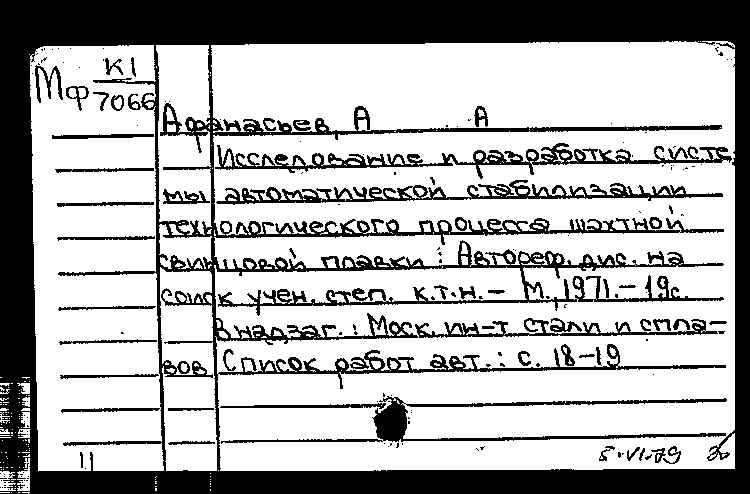 Мф К1
7066
Афанасьев, А А
Исследование и разработка систе
мы автоматической стабилизации
технологического процесса шахтной
свинцовой плавки : Автореф. дис. на
соиск учен. степ. к.т.н. – М., 1971. – 19с.
В надзаг. : Моск. ин-т стали и спла–
вов Список работ авт. : с. 18–19
11 5.VI.79